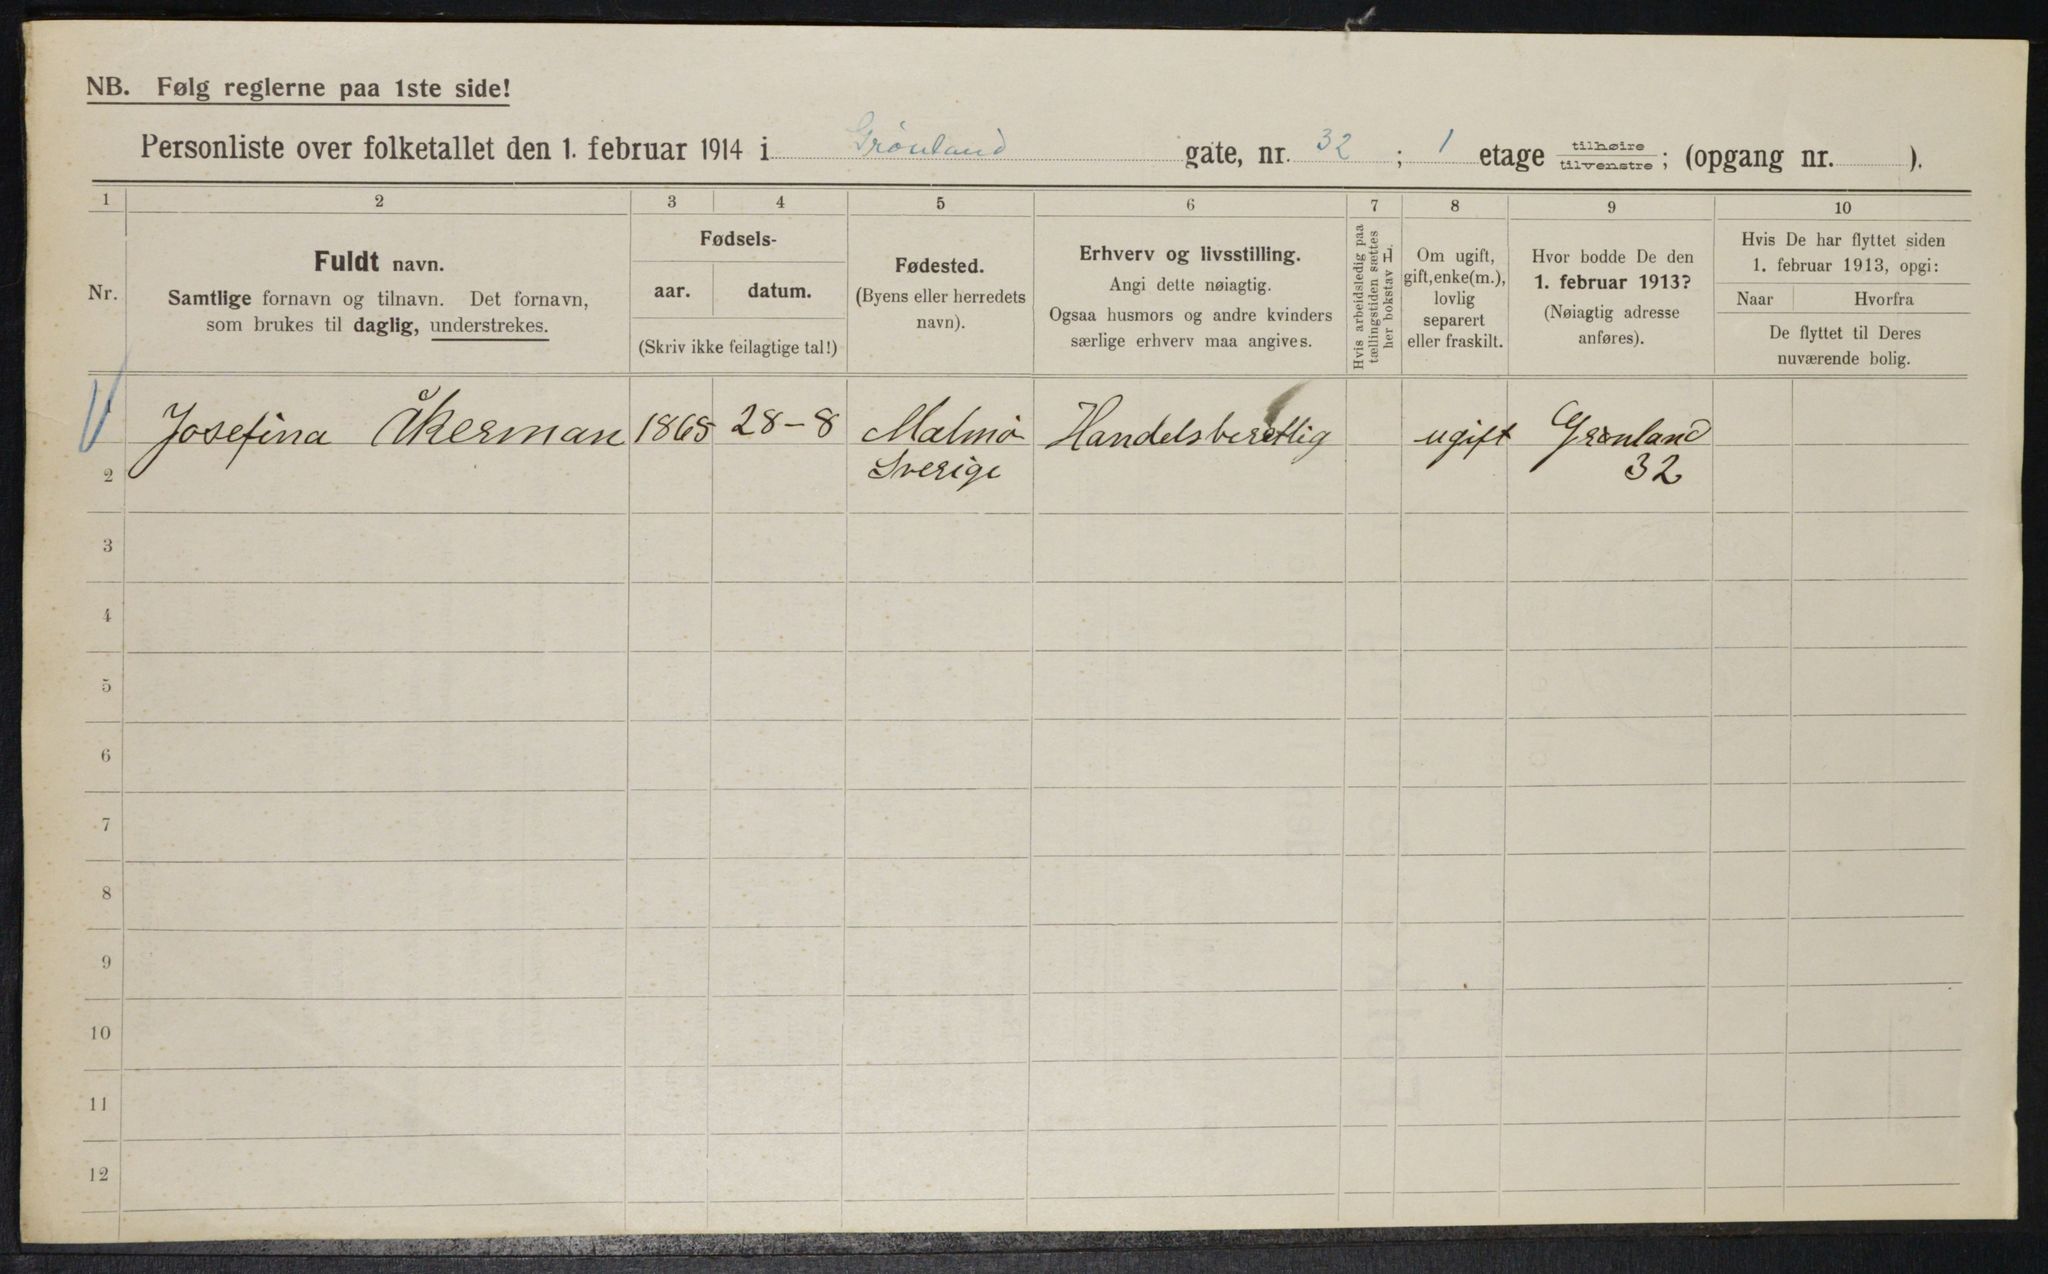 NB. Følg reglerne paa 1ste side!
Personliste over folketallet den 1. februar 1914 i Grönland gate, nr. 32 ; 1 etage tilhøire tilvenstre ; (opgang nr. ).
1 2 3 4 5 6 7 8 9 10
Nr.
Fuldt navn.
Samtlige fornavn og tilnavn. Det fornavn,
som brukes til daglig, understrekes.
Fødsels-
aar. datum.
(Skriv ikke feilagtige tal!)
Fødested.
(Byens eller herredets
navn).
Erhverv og livsstilling.
Angi dette nøiagtig.
Ogsaa husmors og andre kvinders
særlige erhverv maa angives.
Hvis arbeidsledig paa
tællingstiden sættes
her bokstav L.
Om ugift,
gift, enke(m.),
lovlig
separert
eller fraskilt.
Hvor bodde De den
1. februar 1913?
(Nøiagtig adresse
anføres).
Hvis De har flyttet siden
1. februar 1913, opgi:
Naar Hvorfra
De flyttet til Deres
nuværende bolig.
1 Josefina Åkerman 1865 28-8 Malmö Handelsberettig ugift Grønland
2 Sverige 32
3
4
5
6
7
8
9
10
11
12